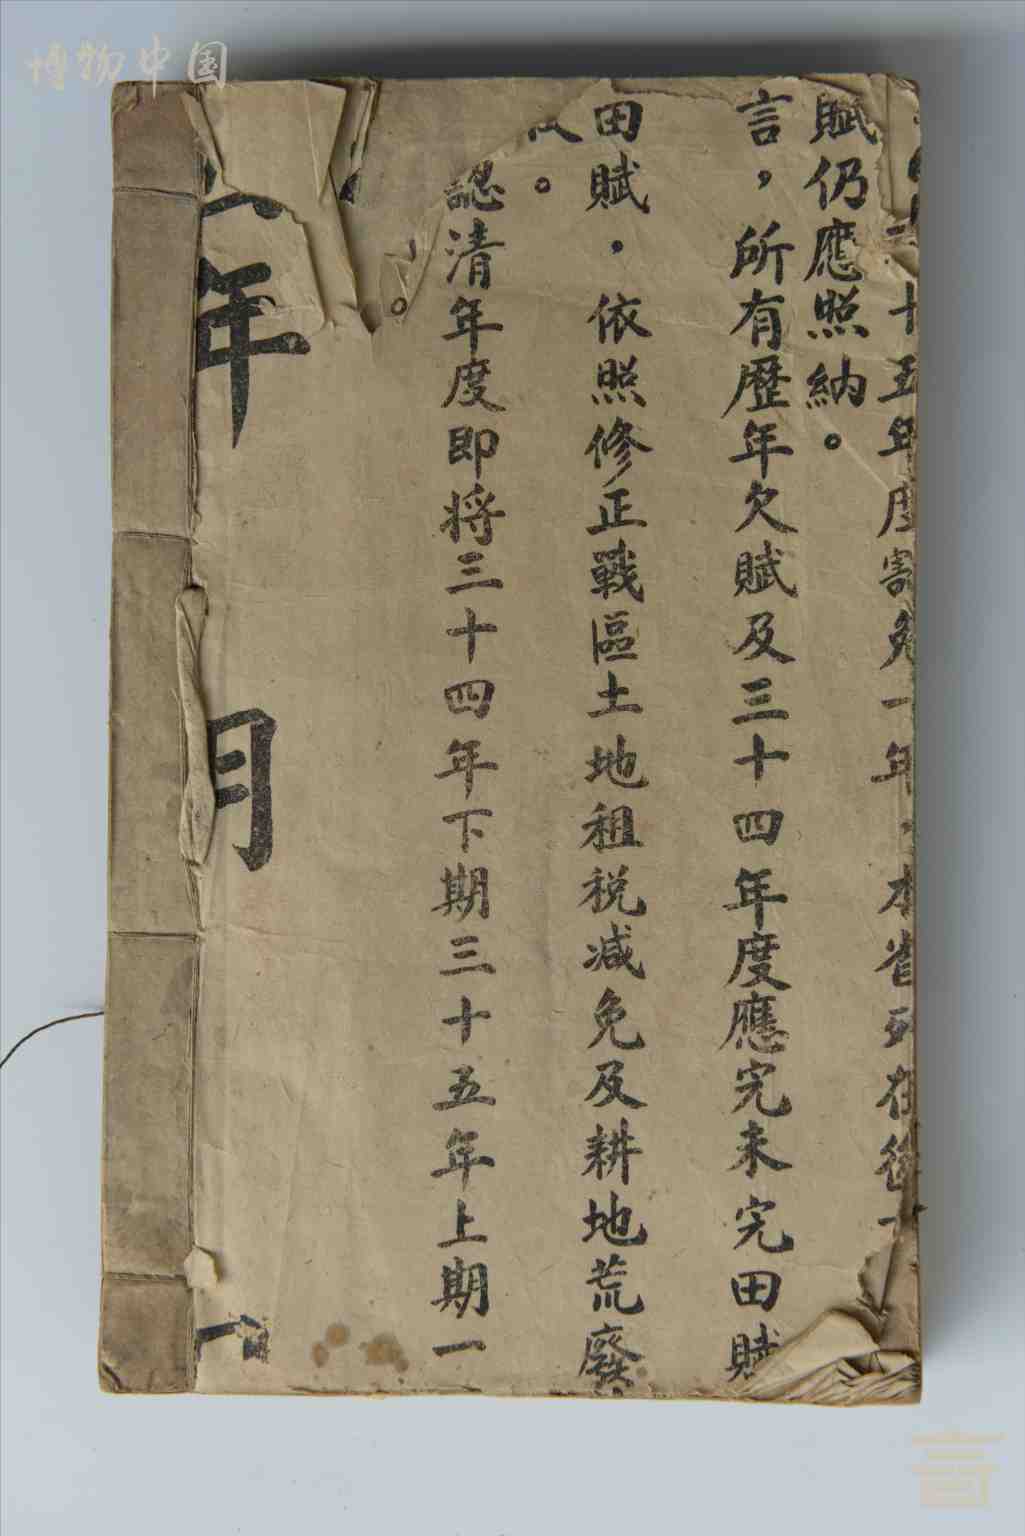 博物中国
十五年度豁免一年，本省列在後
賦仍應照納。
言，所有歷年欠賦及三十四年度應完未完田賦
田賦，依照修正戰區土地租税減免及耕地荒廢
。
認清年度即將三十四年下期三十五年上期一
。
年　月